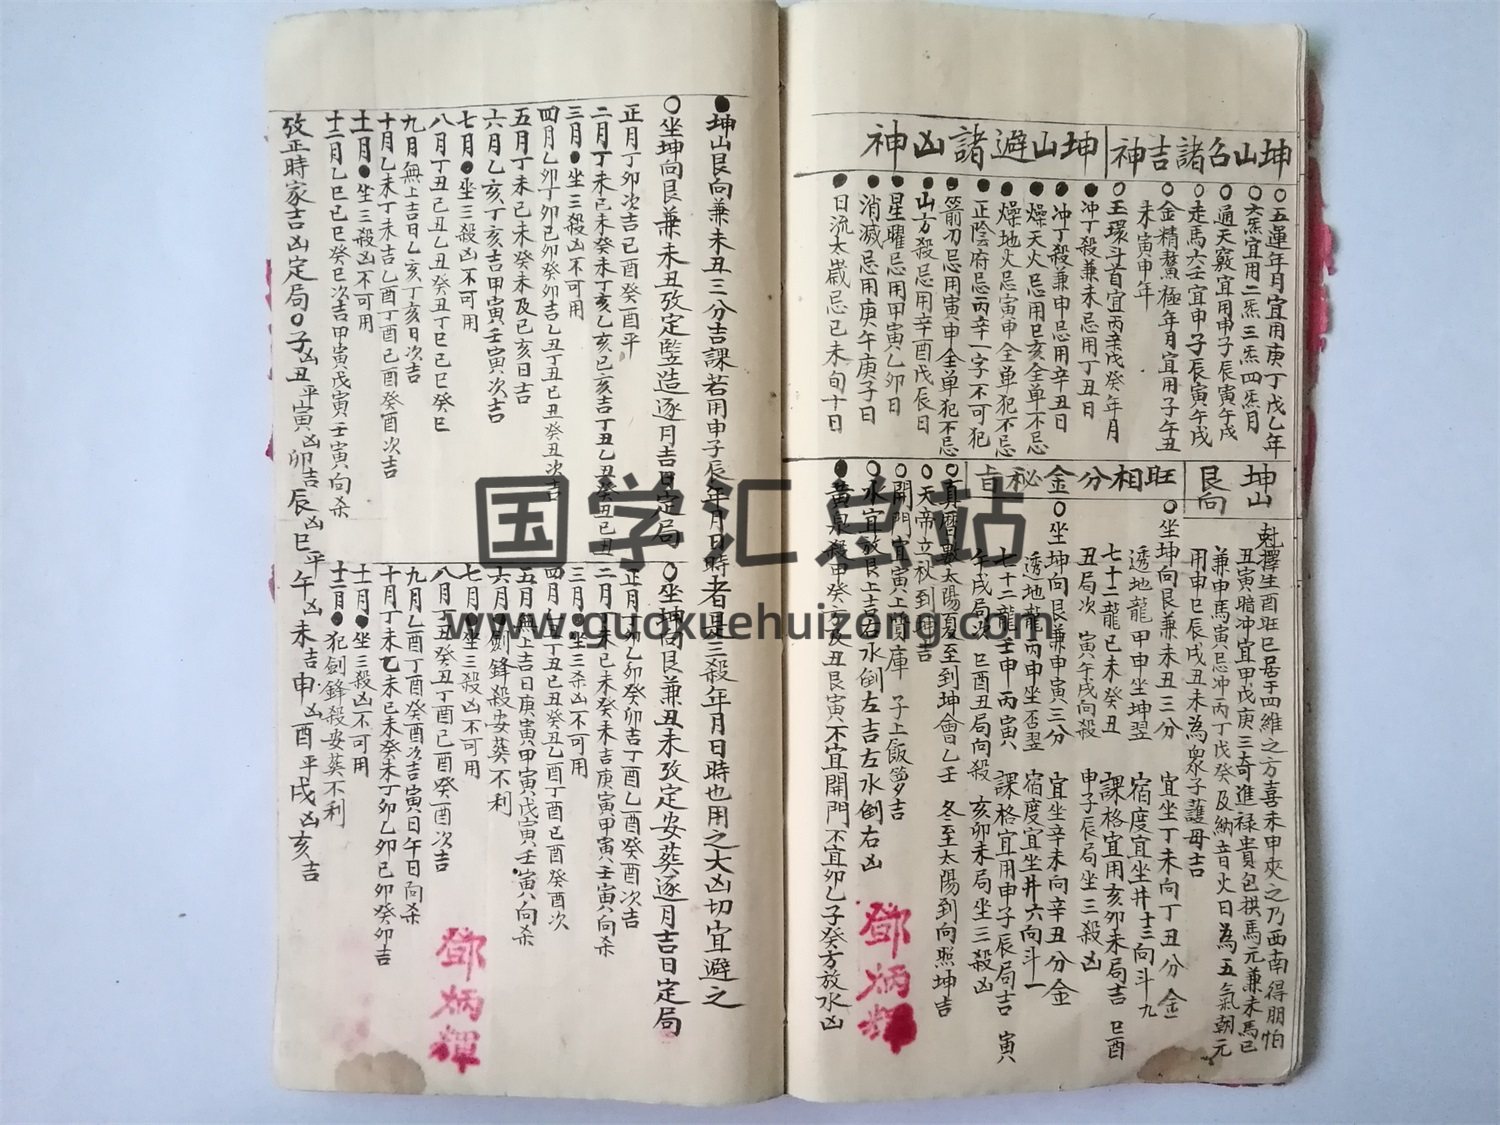 坤山召諸吉神
○五運年月宜用庚丁戊乙年
○六炁宜用二炁三炁四炁月
○通天竅宜用申子辰寅午戌
○走馬六壬宜申子辰寅午戌
○金精鰲極年月宜用子午丑
未寅申年
○玉環斗首宜丙辛戊癸年月
坤山避諸凶神
●冲丁殺兼未忌用丁丑日
●冲丁殺兼申忌用辛丑日
●燥天火忌用巳亥全單不忌
●燥地火忌寅申全單犯不忌
●正陰府忌丙辛一字不可犯
●箭刃忌用寅申全单犯不忌
●山方殺忌用辛酉戊辰日
●星曜忌用甲寅乙卯日
●消滅忌用庚午庚子日
●日流太歲忌己未旬十日
坤山
艮向
尅擇生酉旺巳居于四維之方喜未申夾之乃西南得朋怕
丑寅暗冲宜甲戊庚三奇進祿貴包拱馬元兼未馬巳
兼申馬寅忌冲丙丁戊癸及納音火日為五氣朝元
用申巳辰戌丑未為眾子護母吉
旺相分金秘旨
○坐坤向艮兼未丑三分 宜坐丁未向丁丑分金
透地龍甲申坐坤翌 宿度宜坐井十三向斗九
七十二龍己未癸丑 課格宜用亥卯未局吉 巳酉
丑局次 寅午戌向殺 申子辰局坐三殺凶
○坐坤向艮兼申寅三分 宜坐辛未向辛丑分金
透地龍丙申坐否翌 宿度宜坐井六向斗一
七十二龍壬申丙寅 課格宜用申子辰局吉 寅
午戌局次 巳酉丑局向殺 亥卯未局坐三殺凶
○真曆數太陽夏至到坤會乙壬 冬至太陽到向照坤吉
○天帝立秋到坤吉
○開門宜寅上寶庫 子上飯箩吉
○水宜放艮上吉右水倒左吉左水倒右凶
●黃泉殺甲癸方及丑艮寅不宜開門不宜卯乙子癸方放水凶
鄧炳輝
●坤山艮向兼未丑三分吉課若用申子辰年月日時者是三殺年月日時也用之大凶切宜避之
○坐坤向艮兼未丑攷定竪造逐月吉日定局
正月丁卯次吉己酉癸酉平
二月丁未己未癸未丁亥乙亥己亥吉丁丑乙丑癸丑己丑
三月●坐三殺凶不可用
四月乙卯丁卯己卯癸卯吉乙丑丁丑己丑癸丑次吉
五月丁未己未癸未及己亥日吉
六月乙亥丁亥吉甲寅壬寅次吉
七月●坐三殺凶不可用
八月丁丑己丑乙丑癸丑丁巳己巳癸巳
九月無上吉日乙亥丁亥日次吉
十月乙未丁未吉乙酉丁酉己酉癸酉次吉
十一月●坐三殺凶不可用
十二月乙巳己巳癸巳次吉甲寅戊寅壬寅向杀
○坐坤向艮兼丑未攷定安葬逐月吉日定局
正月丁卯乙卯癸卯吉丁酉乙酉癸酉次吉
二月丁未己未癸未吉庚寅甲寅壬寅向杀
三月●坐三杀凶不可用
四月乙丑丁丑己丑癸丑乙酉丁酉己酉癸酉次
五月無上吉日庚寅甲寅戊寅壬寅向杀
六月●劍鋒殺安葬不利
七月●坐三殺凶不可用
八月丁丑癸丑丁酉己酉癸酉次吉
九月乙酉丁酉癸酉次吉寅日午日向杀
十月丁未乙未己未癸未丁卯乙卯己卯癸卯吉
十一月●坐三殺凶不可用
十二月●犯劍鋒殺安葬不利
攷正時家吉凶定局○子凶丑平寅凶卯吉辰凶巳平午凶未吉申凶酉平戌凶亥吉
鄧炳輝
国学汇总站
www.guoxuehuizong.com